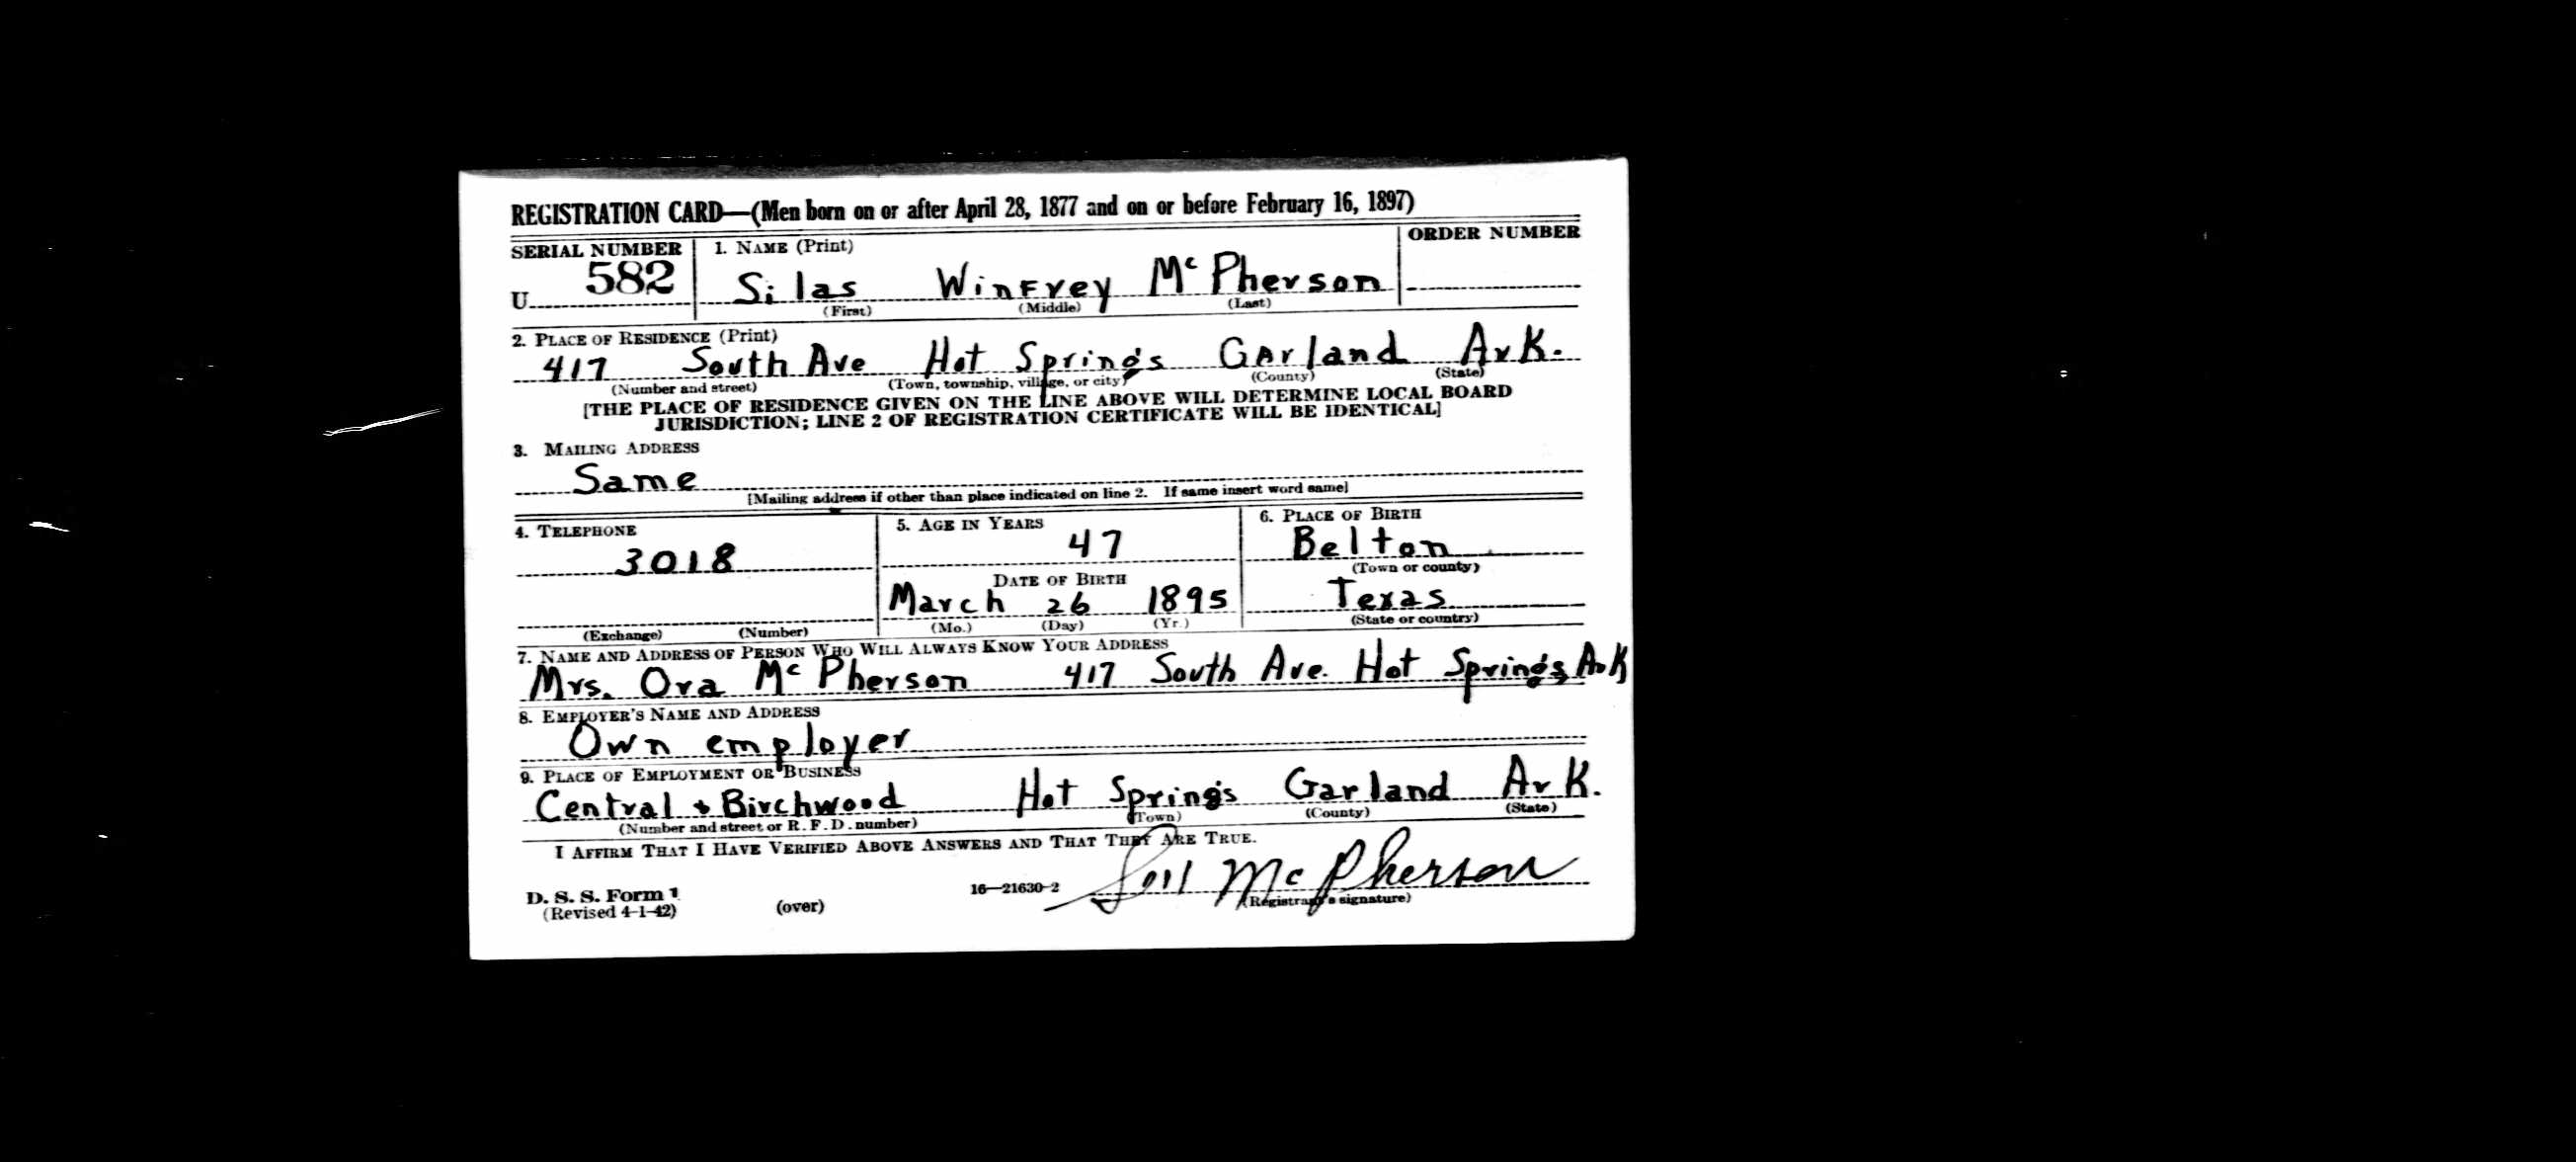 REGISTRATION CARD—(Men born on or after April 28, 1877 and on or before February 16, 1897)
SERIAL NUMBER 1. NAME (Print) ORDER NUMBER
U 582 Silas Winfrey McPherson
(First) (Middle) (Last)
2. PLACE OF RESIDENCE (Print)
417 South Ave Hot Springs Garland Ark.
(Number and street) (Town, township, village, or city) (County) (State)
[THE PLACE OF RESIDENCE GIVEN ON THE LINE ABOVE WILL DETERMINE LOCAL BOARD
JURISDICTION; LINE 2 OF REGISTRATION CERTIFICATE WILL BE IDENTICAL]
3. MAILING ADDRESS
Same
[Mailing address if other than place indicated on line 2. If same insert word same]
4. TELEPHONE 5. AGE IN YEARS 6. PLACE OF BIRTH
3018 47 Belton
(Town or county)
DATE OF BIRTH
March 26 1895 Texas
(Exchange) (Number) (Mo.) (Day) (Yr.) (State or country)
7. NAME AND ADDRESS OF PERSON WHO WILL ALWAYS KNOW YOUR ADDRESS
Mrs. Ora McPherson 417 South Ave. Hot Springs Ark
8. EMPLOYER'S NAME AND ADDRESS
Own employer
9. PLACE OF EMPLOYMENT OR BUSINESS
Central + Birchwood Hot Springs Garland Ark.
(Number and street or R. F. D. number) (Town) (County) (State)
I AFFIRM THAT I HAVE VERIFIED ABOVE ANSWERS AND THAT THEY ARE TRUE.
D. S. S. Form 1 16—21630-2 McPherson
(Revised 4-1-42) (over) (Registrant's signature)